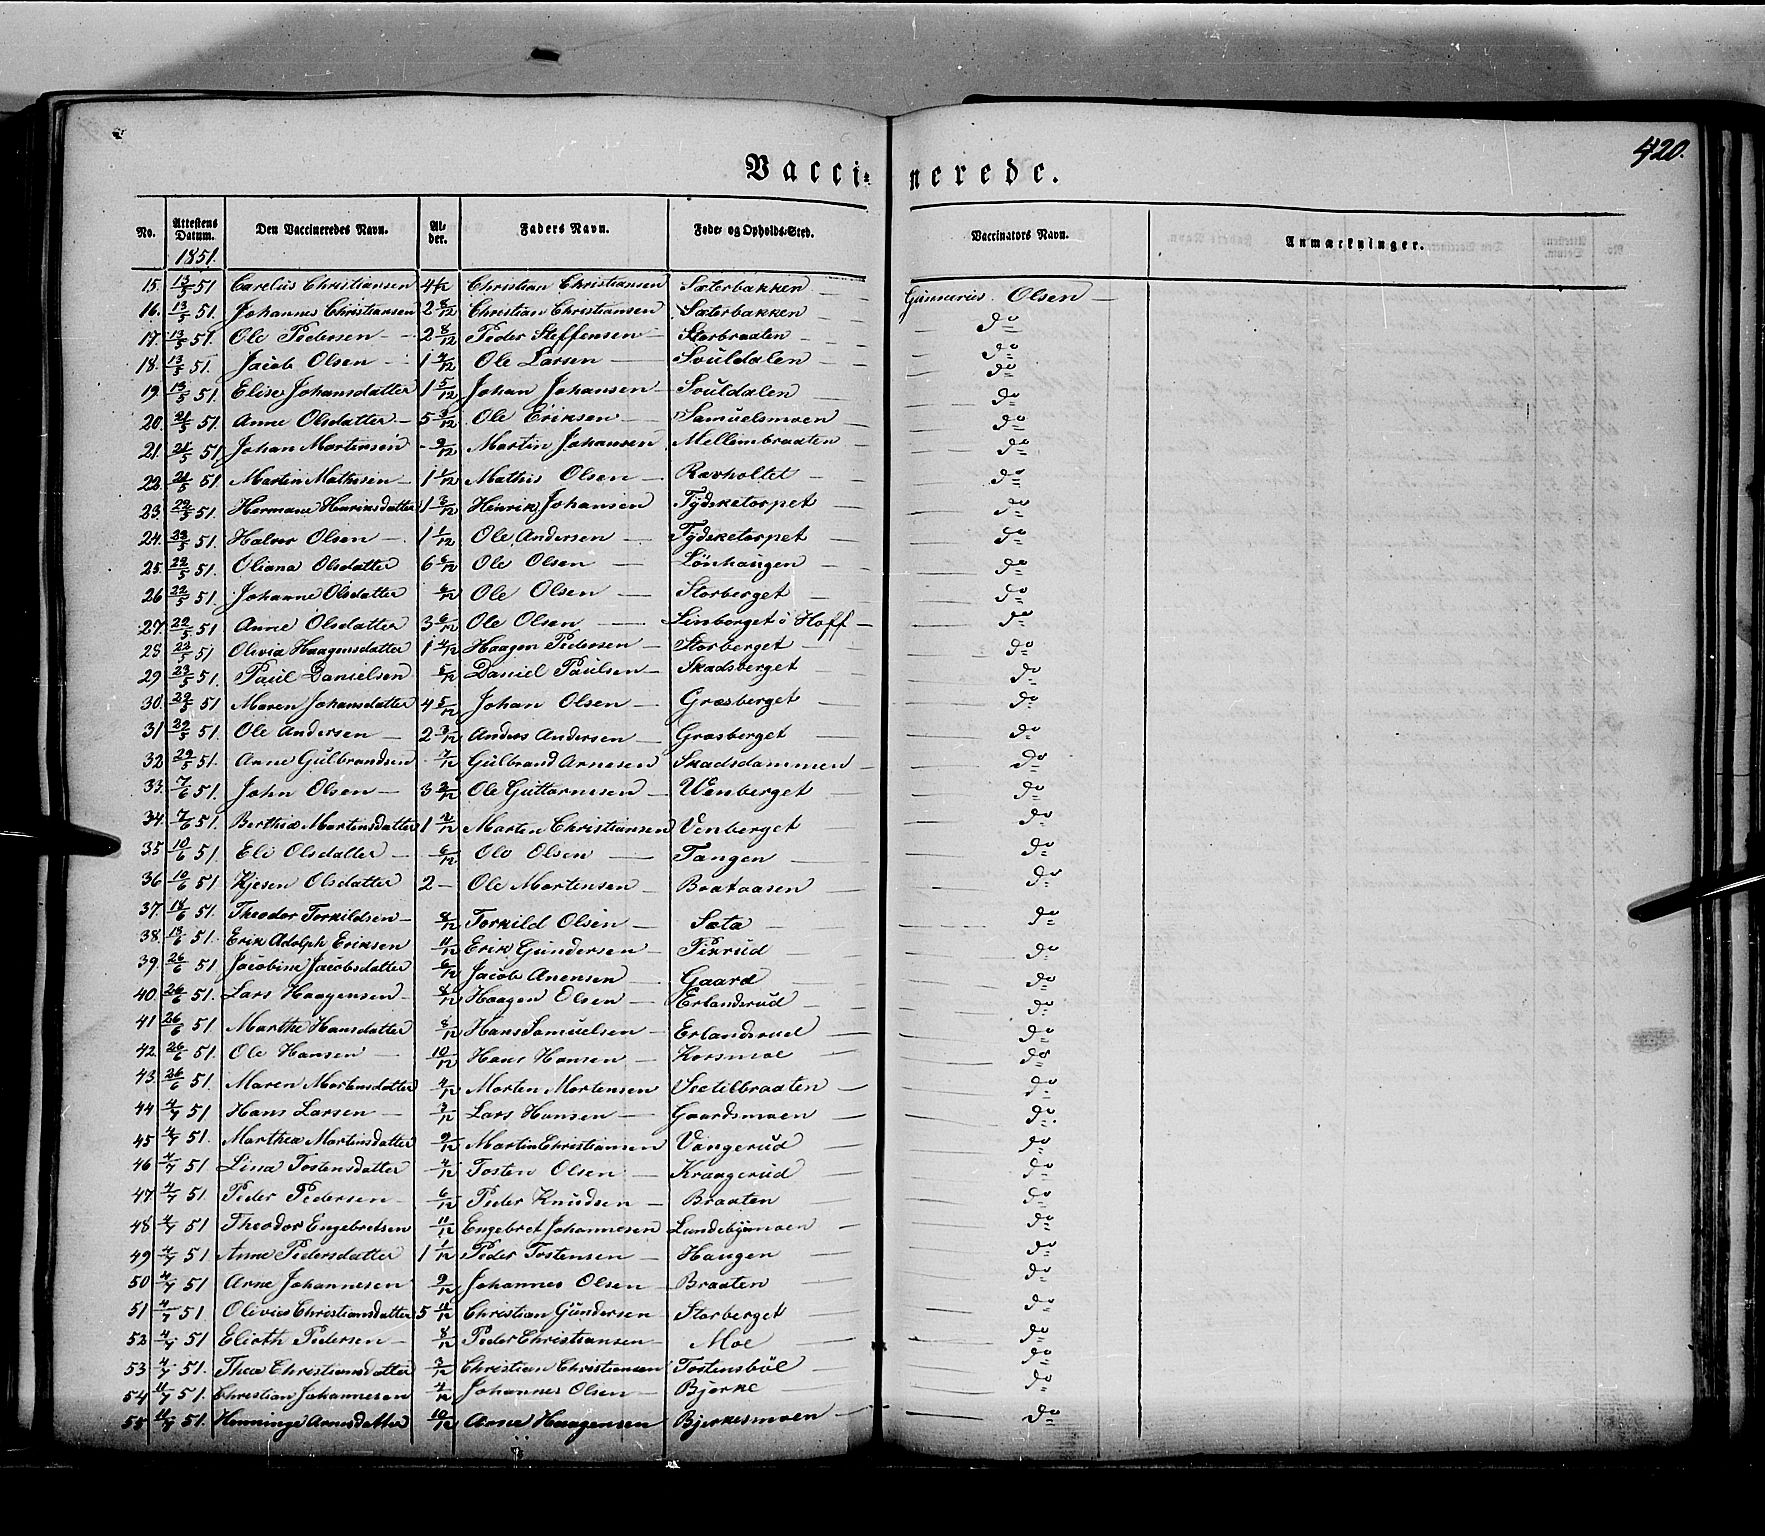 420.
Vaccinerede.
No. Attestens Datum. Den Vaccineredes Navn. Alder. Faders Navn. Føde- og Opholds-Sted. Vaccinators Navn. Anmærkninger.
1851.
15. 13/5 51 Carelius Christiansen 4 Christian Christiansen Sæterbakken — Gunnerius Olsen —
16. 13/5 51. Johannes Christiansen 2 8/12 Christian Christiansen Sæterbakken — do
17. 13/5 51. Ole Pedersen — 2 8/12 Peder Steffensen — Storbraaten — do
18. 13/5 51. Jacob Olsen — 1 4/12 Ole Larsen — Souldalen — do
19. 13/5 51. Elise Johansdatter 1 5/12 Johan Johansen — Souldalen — do
20. 21/5 51. Anne Olsdatter — 5 3/12 Ole Eriksen — Samuelsmoen — do
21. 21/5 51 Johan Martinsen - 9/12 Martin Johansen Mellembraaten — do
22. 21/5 51. Martin Mathisen — 1 1/12 Mathis Olsen — Ravholtet — do
23. 22/5 51. Hermane Henriksdatter 1 3/12 Henrik Johansen Tydsketorpet — do
24. 22/5 51. Halvor Olsen — 1 1/12 Ole Andersen — Tydsketorpet — do
25. 22/5 51. Oliana Olsdatter 6 6/12 Ole Olsen — Lönhaugen — do
26 22/5 51. Johanne Olsdatter 6/12 Ole Olsen — Storberget — do
27. 22/5 51 Anne Olsdatter 3 6/12 Ole Olsen — Linberget i Hoff — do
28. 22/5 51 Olivia Haagensdatter 1 4/12 Haagen Pedersen — Storberget — do
29 22/5 51. Paul Danielsen 5/12 Daniel Paulsen — Skadsberget — do
30. 22/5 51 Maren Johansdatter 4 5/12 Johan Olsen — Græsberget — do
31 22/5 51. Ole Andersen — 2 3/12 Anders Andersen — Græsberget — do
32 22/5 51. Arne Gulbrandsen 7/12 Gulbrand Arnesen Skadsdammen — do
33. 7/6 51. John Olsen — 3 2/12 Ole Guttormsen — Venberget — do
34. 7/6 51. Berthea Martinsdatter 1 2/12 Marten Christiansen Venberget — do
35 10/6 51. Eli Olsdatter — 6/12 Ole Olsen — Tangen — do
36 10/6 51 Kjesen Olsdatter 2 — Ole Mortensen — Baataasen — do
37. 51. Theodor Torkildsen — 8/12 Torkild Olsen — Sæta — do
38. 51. Erik Adolph Eriksen 11/12 Erik Gundersen — Pikrud — do
39. 26/6 51 Jacobine Jacobsdatter 6/12 Jacob Anensen — Gaard — do
40. 26/6 51. Lars Haagensen — 8/12 Haagen Olsen — Erlandsrud — do
41 26/6 51 Marthe Hansdatter 8/12 Hans Samuelsen — Erlandsrud — do
42. 26/6 51. Ole Hansen — 10/12 Hans Hansen — Korsmoe — do
43. 26/6 51. Maren Mortensdatter 4/12 Morten Mortensen Sætilbraaten — do
44 4/7 51 Hans Larsen — 3/12 Lars Hansen — Gaardsmoen — do
45 4/7 51. Marthea Martinsdatter 9/12 Martin Christiansen Vangerud — do
46 4/7 51. Lina Tostensdatter 4/12 Tosten Olsen — Kraagerud — do
47. 4/7 51. Peder Pedersen — 6/12 Peder Knudsen — Braaten — do
48 4/7 51 Theodor Engebretsen 11/12 Engebret Johannesen Lundebymoen — do
49 4/7 51 Anne Pedersdatter 1 1/12 Peder Tostensen — Haugen — do
50 4/7 51 Arne Johannesen 9/12 Johannes Olsen — Braaten — do
51 4/7 51 Olivia Christiansdatter 5 11/12 Christian Gundersen Storberget — do
52 4/7 51 Elioth Pedersen — 8/12 Peder Christiansen — Moe — do
53 4/7 51. Thea Christiansdatter 3/12 Christian Christiansen Tostensböl — do
54 11/7 51. Christian Johannesen 4/12 Johannes Olsen — Bjerke — do
55 11/7 51. Henninge Arnesdatter 10/12 Arne Haagensen Bjerkesmoen — do